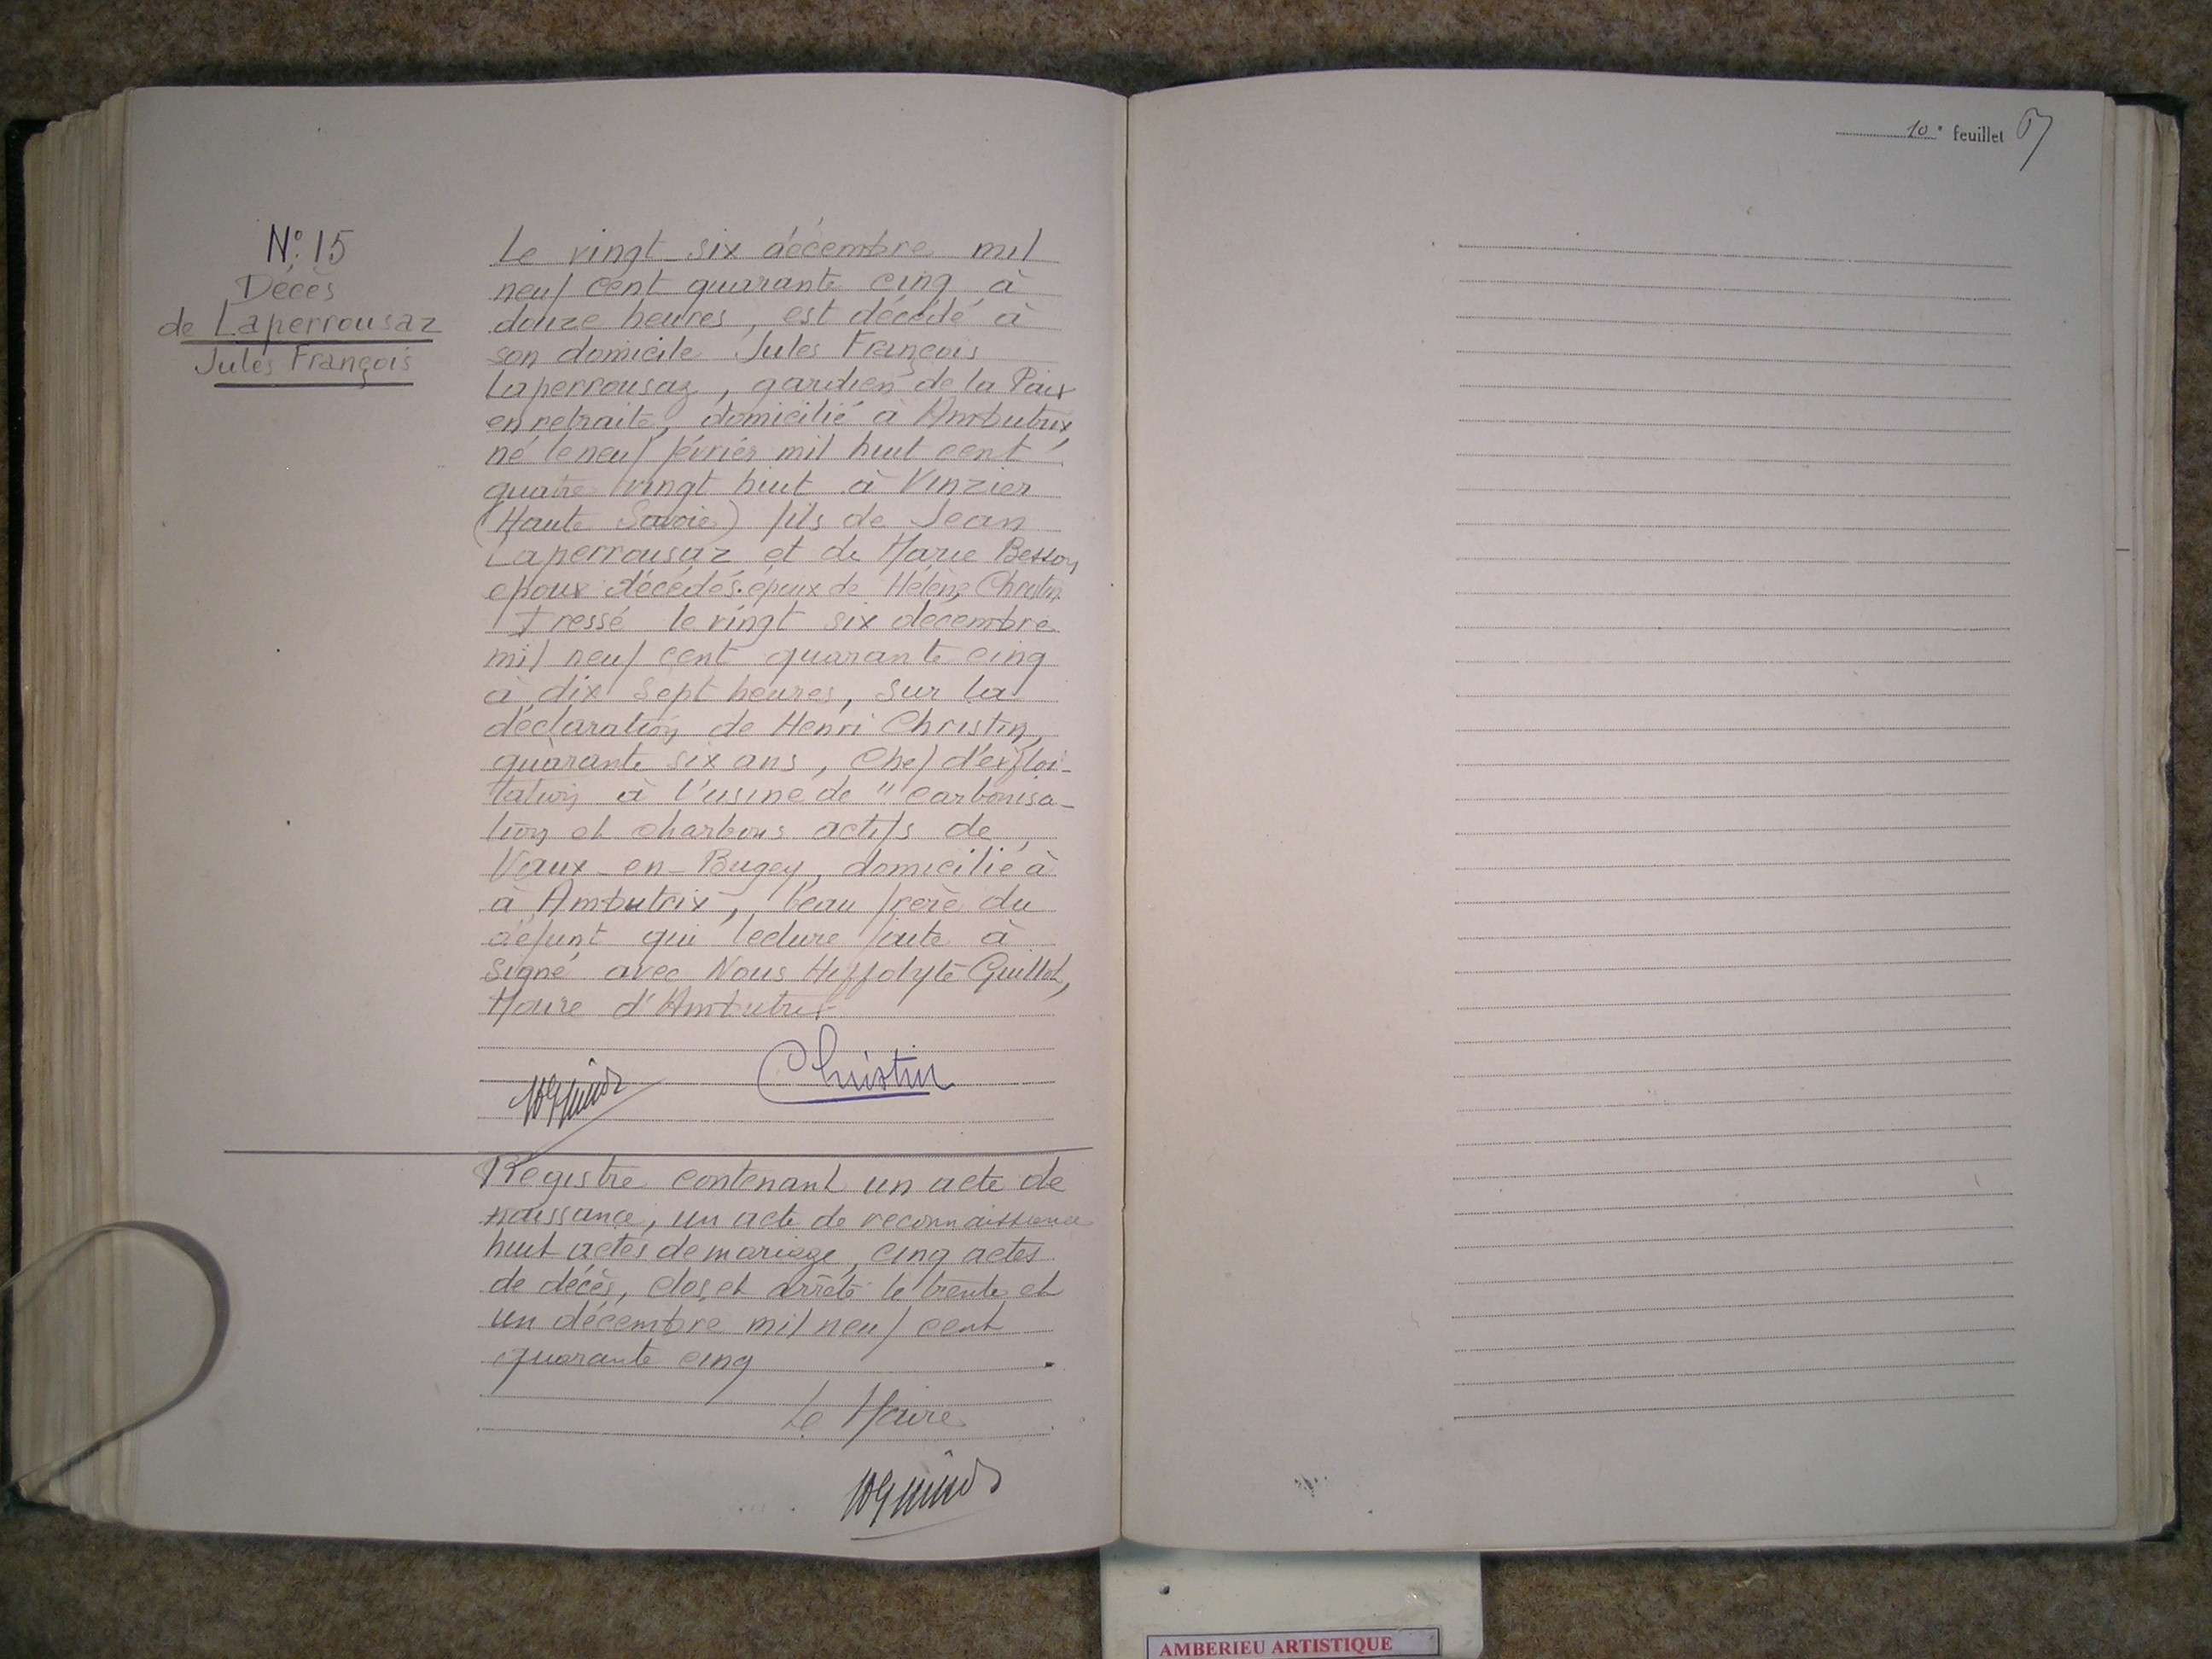 N° 15
Décès
de Laperrousaz
Jules François
Le vingt six décembre mil
neuf cent quarante cinq à
douze heures, est décédé à
son domicile Jules François
Laperrousaz, gardien de la Paix
en retraite, domicilié à Ambutrix,
né le neuf février mil huit cent
quatre vingt huit à Vinzier
(Haute Savoie) fils de Jean
Laperrousaz et de Marie Besson
époux décédés. époux de Hélène Christin
Dressé le vingt six décembre
mil neuf cent quarante cinq
à dix sept heures, sur la
déclaration de Henri Christin,
quarante six ans, Chef d'exploi-
tation à l'usine de "carbonisa-
tion et charbons actifs de
Vaux-en-Bugey, domicilié à
à Ambutrix, beau frère du
défunt qui lecture faite à
signé avec Nous Hippolyte Guillot,
Maire d'Ambutrix
Christin
Registre contenant un acte de
naissance, un acte de reconnaissance
huit actes de mariage, cinq actes
de décès, clos et arrêté le trente et
un décembre mil neuf cent
quarante cinq
Le Maire
10e feuillet 67
AMBERIEU ARTISTIQUE